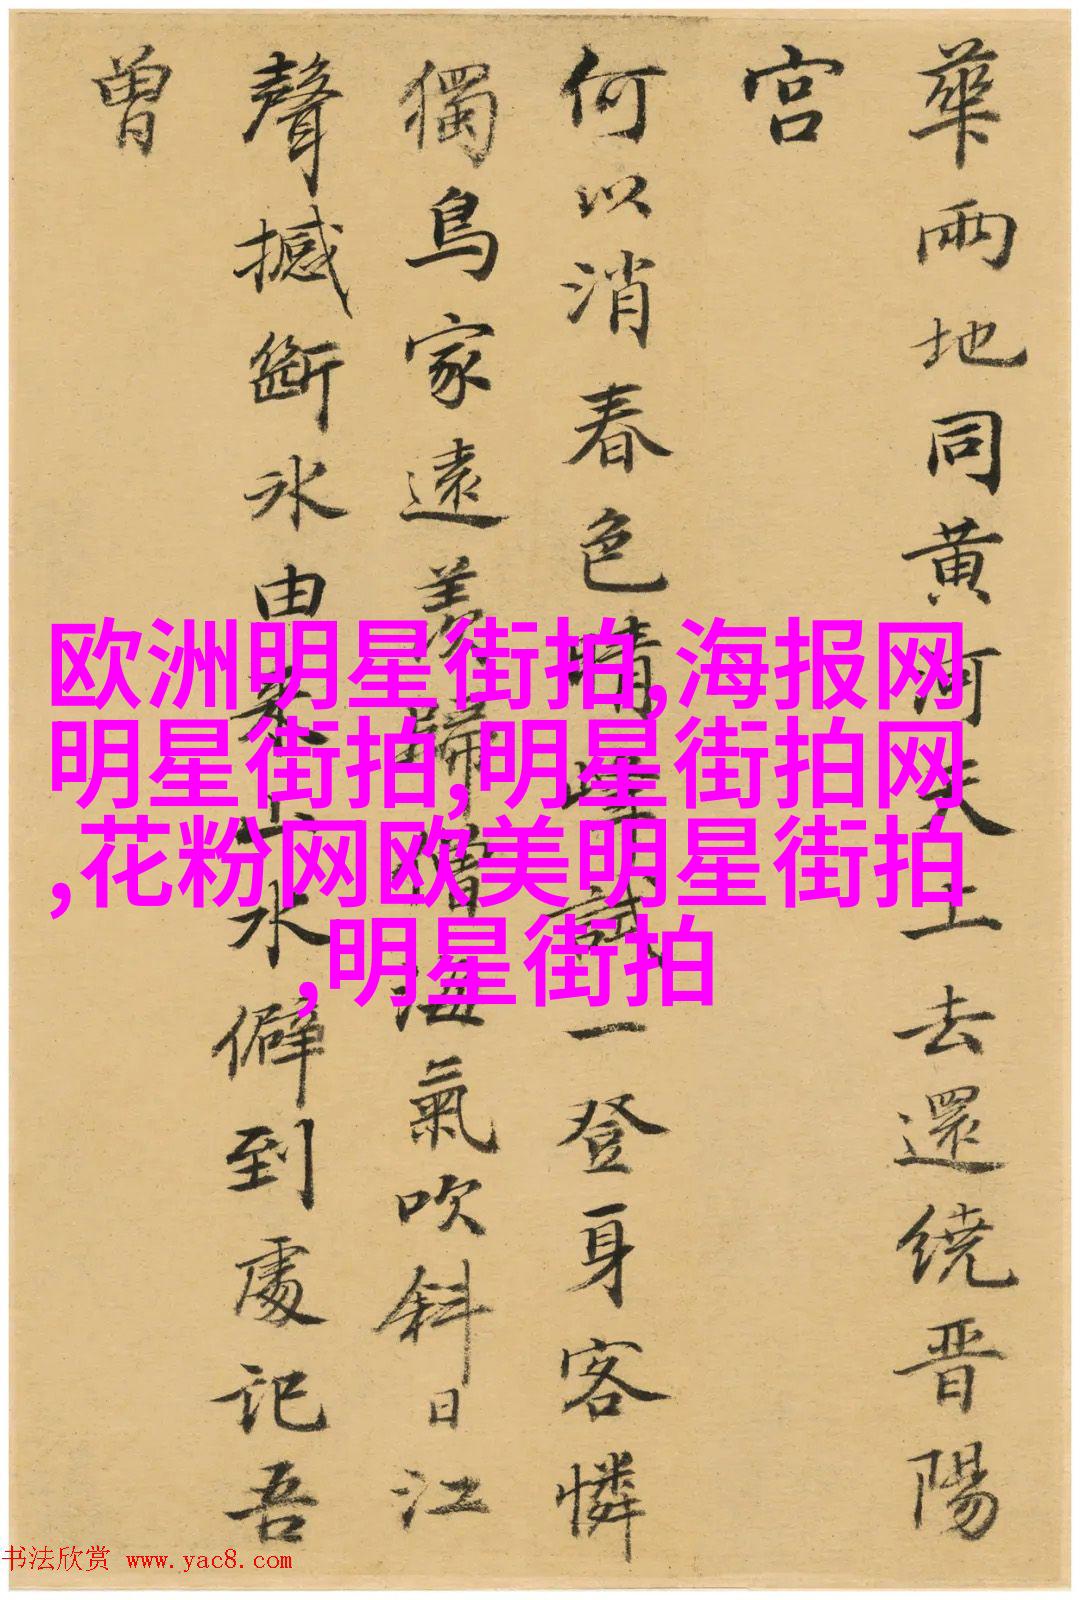 華兩地同黄河天上去還繞晋陽
宫
何以消春色晴峰試一登身客憐
獨鳥家遠羨歸僧海氣吹斜日江
聲撼斷冰由来山水僻到處記吾
曾
欧洲明星街拍,海报网
明星街拍,明星街拍网
,花粉网欧美明星街拍
,明星街拍
书法欣赏 www.yac8.com